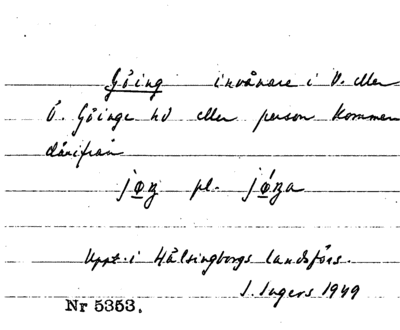 Göing invånare i V. eller
Ö. Göinge hd eller person kommen
därifrån
jøŋ pl. jøŋa
Uppt. i Hälsingborgs landsförs.
I. Ingers 1949
Nr 5353.